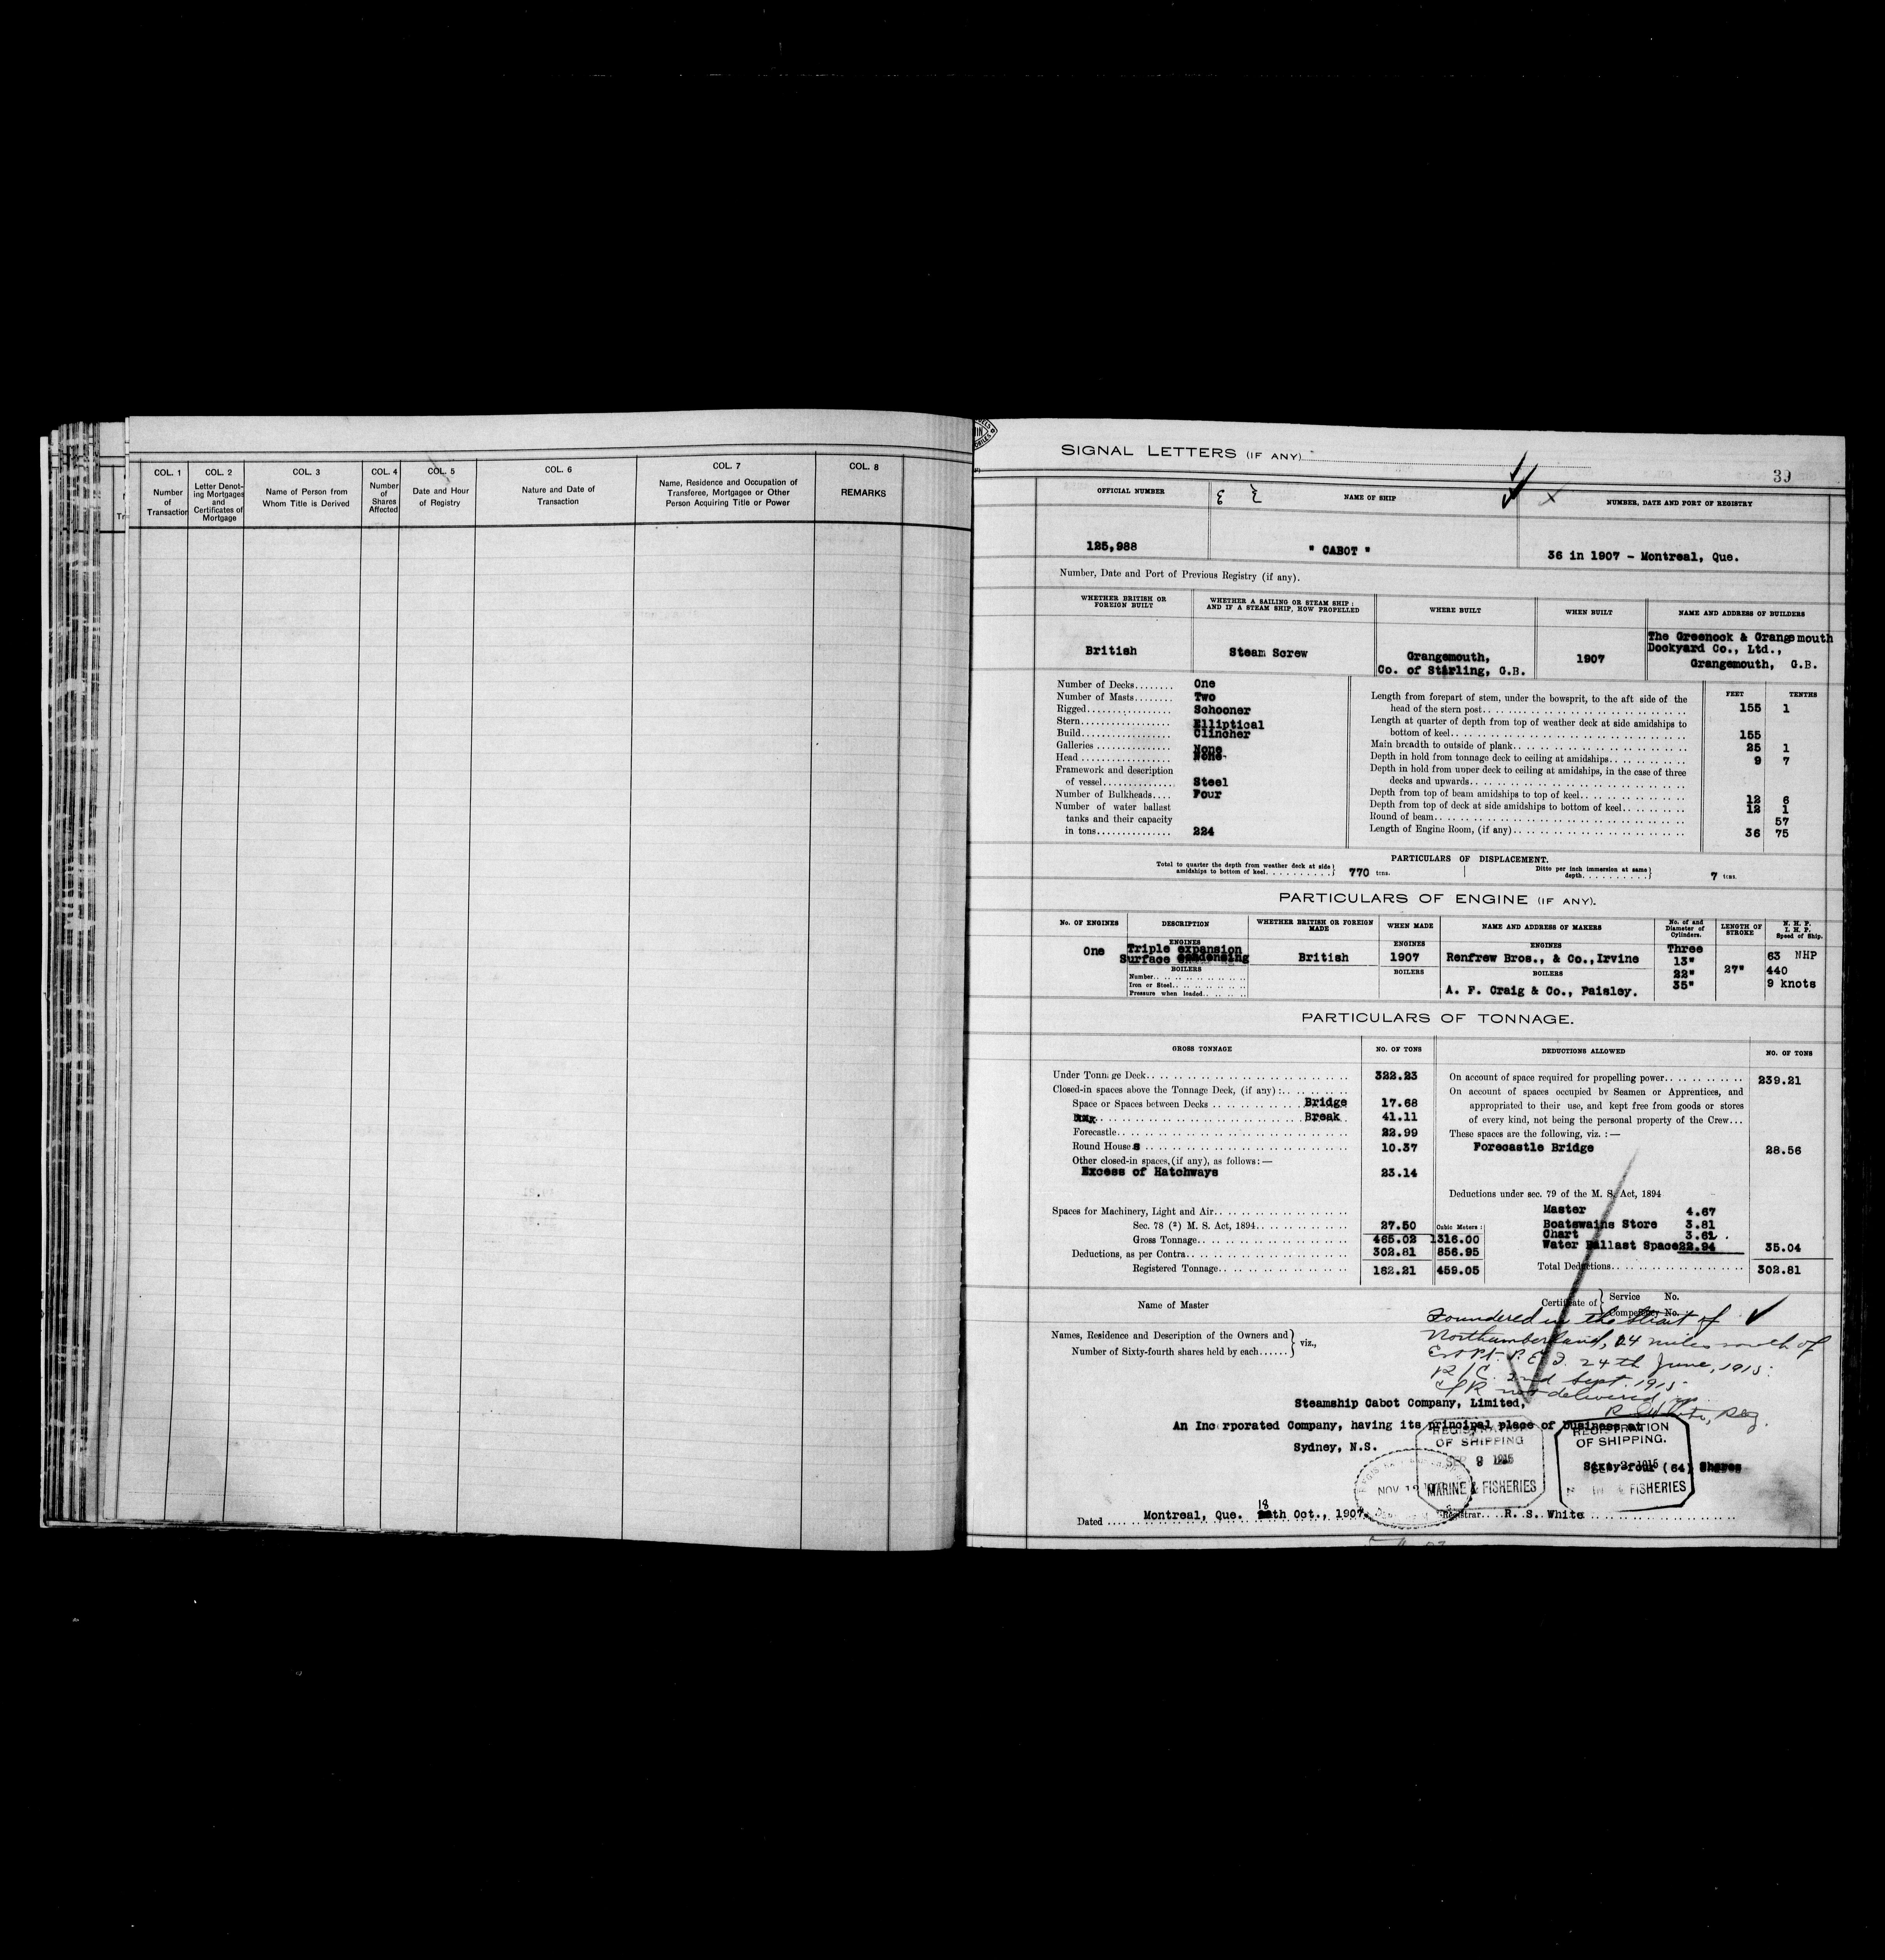 COL. 1
Number
of
Transaction
COL. 2
Letter Denot-
ing Mortgages
and
Certificates of
Mortgage
COL. 3
Name of Person from
Whom Title is Derived
COL. 4
Number
of
Shares
Affected
COL. 5
Date and Hour
of Registry
COL. 6
Nature and Date of
Transaction
COL. 7
Name, Residence and Occupation of
Transferee, Mortgagee or Other
Person Acquiring Title or Power
COL. 8
REMARKS
SIGNAL LETTERS (IF ANY)
39
OFFICIAL NUMBER
NAME OF SHIP
NUMBER, DATE AND PORT OF REGISTRY
125,988
" CABOT "
36 in 1907 - Montreal, Que.
Number, Date and Port of Previous Registry (if any).
WHETHER BRITISH OR
FOREIGN BUILT
WHETHER A SAILING OR STEAM SHIP :
AND IF A STEAM SHIP, HOW PROPELLED
WHERE BUILT
WHEN BUILT
NAME AND ADDRESS OF BUILDERS
British
Steam Screw
Grangemouth,
Co. of Stirling, G.B.
1907
The Greenock & Grangemouth
Dockyard Co., Ltd.,
Grangemouth, G.B.
Number of Decks........ One
Number of Masts........ Two
Rigged................. Schooner
Stern.................. Elliptical
Build.................. Clincher
Galleries ............... None
Head .................. None
Framework and description
of vessel............... Steel
Number of Bulkheads.... Four
Number of water ballast
tanks and their capacity
in tons............... 224
FEET TENTHS
Length from forepart of stem, under the bowsprit, to the aft side of the
head of the stern post........ 155 1
Length at quarter of depth from top of weather deck at side amidships to
bottom of keel........ 155
Main breadth to outside of plank........ 25 1
Depth in hold from tonnage deck to ceiling at amidships........ 9 7
Depth in hold from upper deck to ceiling at amidships, in the case of three
decks and upwards........
Depth from top of beam amidships to top of keel........ 12 6
Depth from top of deck at side amidships to bottom of keel........ 12 1
Round of beam........ 57
Length of Engine Room, (if any)........ 36 75
PARTICULARS OF DISPLACEMENT.
Total to quarter the depth from weather deck at side
amidships to bottom of keel.......... 770 tons.
Ditto per inch immersion at same
depth.......... 7 tons.
PARTICULARS OF ENGINE (IF ANY).
No. OF ENGINES
DESCRIPTION
WHETHER BRITISH OR FOREIGN
MADE
WHEN MADE
NAME AND ADDRESS OF MAKERS
No. of and
Diameter of
Cylinders.
LENGTH OF
STROKE
N. H. P.
I. H. P.
Speed of Ship.
One
ENGINES
Triple expansion
Surface condensing
BOILERS
Number........
Iron or Steel........
Pressure when loaded........
British
ENGINES
1907
BOILERS
ENGINES
Renfrew Bros., & Co., Irvine
BOILERS
A. F. Craig & Co., Paisley.
Three
13"
22"
35"
27"
63 NHP
440
9 knots
PARTICULARS OF TONNAGE.
GROSS TONNAGE
NO. OF TONS
DEDUCTIONS ALLOWED
NO. OF TONS
Under Tonnage Deck........ 322.23
Closed-in spaces above the Tonnage Deck, (if any) :........
Space or Spaces between Decks ........ Bridge 17.68
Break 41.11
Forecastle........ 22.99
Round Houses ........ 10.37
Other closed-in spaces, (if any), as follows: —
Excess of Hatchways 23.14
Spaces for Machinery, Light and Air........
Sec. 78 (2) M. S. Act, 1894........ 27.50 Cubic Meters :
Gross Tonnage........ 465.02 1316.00
Deductions, as per Contra........ 302.81 856.95
Registered Tonnage........ 162.21 459.05
On account of space required for propelling power........ 239.21
On account of spaces occupied by Seamen or Apprentices, and
appropriated to their use, and kept free from goods or stores
of every kind, not being the personal property of the Crew...
These spaces are the following, viz. : —
Forecastle Bridge 28.56
Deductions under sec. 79 of the M. S. Act, 1894
Master 4.67
Boatswains Store 3.81
Chart 3.62
Water Ballast Space 22.94 35.04
Total Deductions........ 302.81
Name of Master
Certificate of
Service No.
Competency No.
Foundered in the Strait of
Northumberland, 24 miles south of
East Pt. P.E.I. 24th June, 1915.
R/C. 2nd Sept. 1915
C/R not delivered up.
R S White, Reg.
Names, Residence and Description of the Owners and
Number of Sixty-fourth shares held by each......
viz.,
Steamship Cabot Company, Limited,
An Incorporated Company, having its principal place of business at
Sydney, N.S.
Sixty-four (64) Shares
REGISTRATION
OF SHIPPING
SEP 9 1915
MARINE & FISHERIES
REGISTRATION
OF SHIPPING.
1915
& FISHERIES
NOV
Dated .... Montreal, Que. 18th Oct., 1907. Registrar.... R. S. White